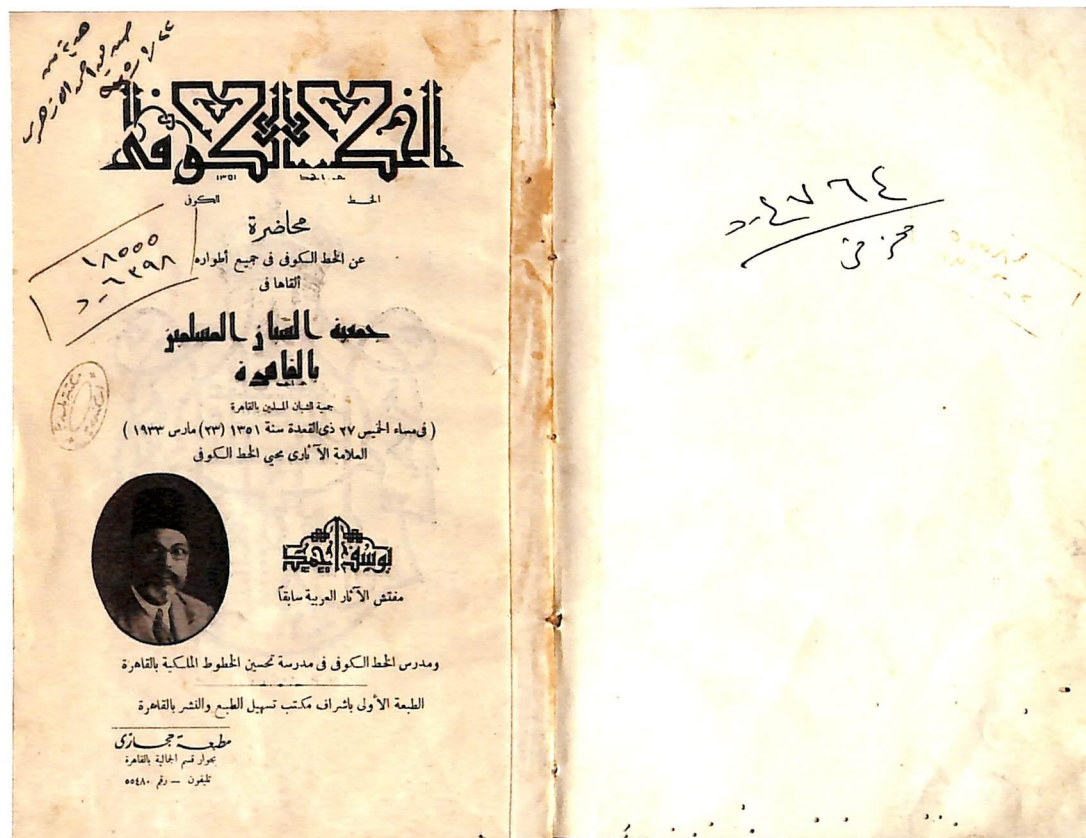 ٤٧٦٤ـد
هدية من
الخط الكوفى
١٣٥١
الخط الكوفى
محاضرة
عن الخط الكوفى فى جميع أطواره
ألقاها فى
١٨٥٥٥
٦٣٩٨ـد
جمعية الشبان المسلمين
بالقاهرة
جمعية الشبان المسلمين بالقاهرة
( فى مساء الخميس ٢٧ ذى القعدة سنة ١٣٥١ (٢٣) مارس ١٩٣٣ )
العلامة الآثارى محيي الخط الكوفى
يوسف احمد
مفتش الآثار العربية سابقاً
ومدرس الخط الكوفى فى مدرسة تحسين الخطوط الملكية بالقاهرة
الطبعة الأولى باشراف مكتب تسهيل الطبع والنشر بالقاهرة
مطبعة حجازى
بجوار قسم الجمالية بالقاهرة
تليفون — رقم ٥٥٤٨٠